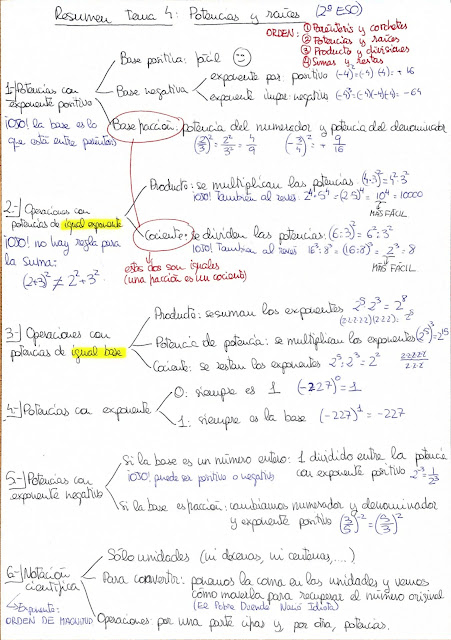 Resumen Tema 4: Potencias y raíces (2º ESO)
ORDEN: ① Paréntesis y corchetes
② Potencias y raíces
③ Productos y divisiones
④ Sumas y restas
1-] Potencias con
exponente positivo
¡OJO! la base es lo
que está entre paréntesis
Base positiva: fácil
Base negativa
exponente par: positivo (-4)²=(-4)·(-4)=+16
exponente impar: negativo (-4)³=(-4)(-4)(-4)=-64
Base fracción: potencia del numerador y potencia del denominador
(2/3)² = 2²/3² = 4/9 (-3/4)² = + 9/16
2-] Operaciones con
potencias de igual exponente
¡OJO! no hay regla para
la suma:
(2+3)² ≠ 2²+3²
Producto: se multiplican las potencias (4·3)²=4²·3²
¡OJO! También al revés 2⁴·5⁴=(2·5)⁴=10⁴=10000
MÁS FÁCIL
Cociente: se dividen las potencias: (6:3)²=6²:3²
¡OJO! También al revés 16³:8³=(16:8)³=2³=8
MÁS FÁCIL
estas dos son iguales
(una fracción es un cociente)
3-] Operaciones con
potencias de igual base
Producto: se suman los exponentes 2⁵·2³=2⁸
(2·2·2·2·2)(2·2·2)=2⁸
Potencia de potencia: se multiplican los exponentes (2⁵)³=2¹⁵
Cociente: se restan los exponentes 2⁵:2³=2² 2·2·2·2·2/2·2·2
4-] Potencias con exponente
0: siempre es 1 (-227)⁰=1
1: siempre es la base (-227)¹=-227
5-] Potencias con
exponente negativo
Si la base es un número entero: 1 dividido entre la potencia
¡OJO! puede ser positivo o negativo con exponente positivo 2⁻³=1/2³
Si la base es fracción: cambiamos numerador y denominador
y exponente positivo (3/5)⁻²=(5/3)²
6-] Notación
científica
→ Exponente:
ORDEN DE MAGNITUD
Sólo unidades (ni decenas, ni centenas,....)
Para convertir: ponemos la coma en las unidades y vemos
cómo moverla para recuperar el número original
(El Pobre Duende Nació Idiota)
Operaciones: por una parte cifras y, por otra, potencias.